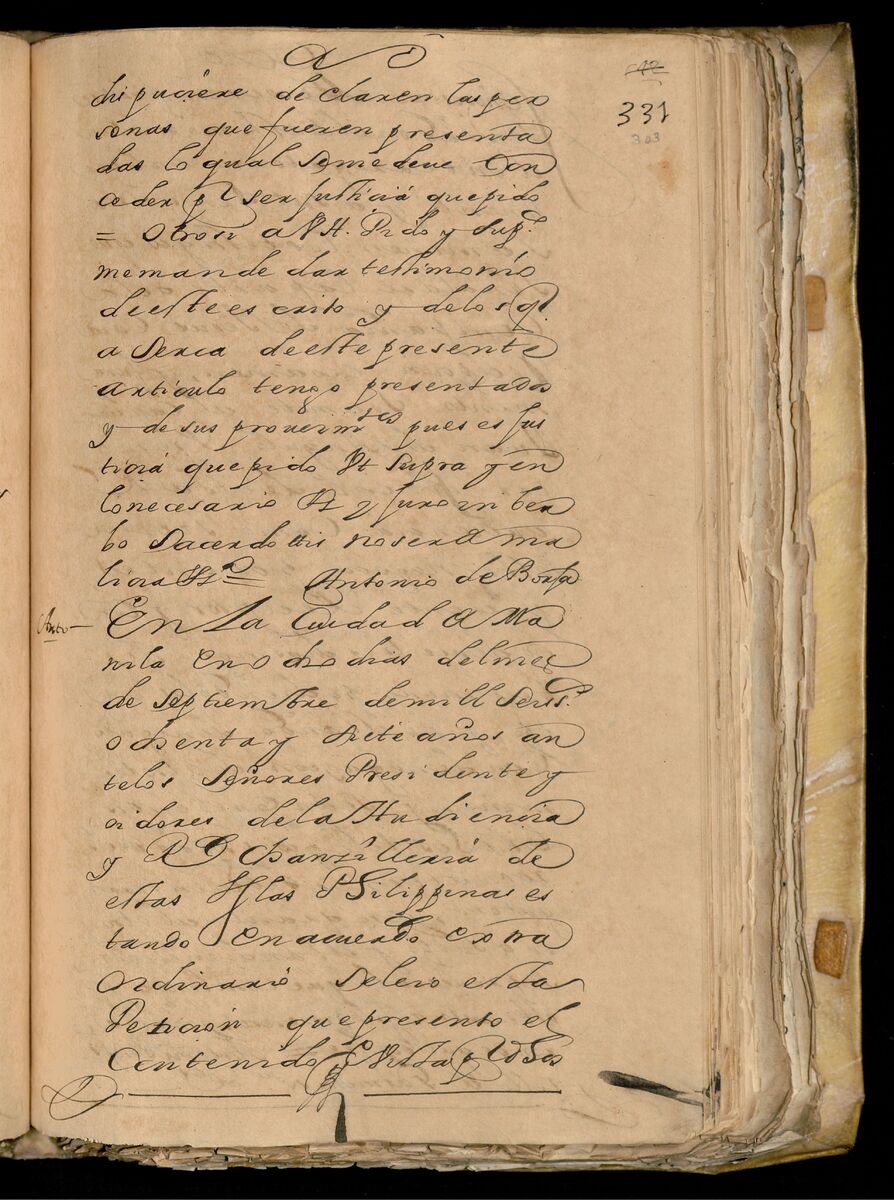 342
331
303
dispuciere declaren las per
sonas que fueren presenta
das lo qual seme deve con
ceder pr ser justicia que pido
= otrosi a VA. Pido y supco
memande dar testimonio
de este escrito y delos qe
a serca de este presente
articulo tengo presentados
y de sus proueimtos pues es jus
ticia que pido Vt supra y en
lo necesario y juro in ber
bo sacerdottis no ser de ma
licia Antonio de Borja
Auto
En La Ciudad de Ma
nila en ocho dias del mes
de septiembre de mill seiss.
ochenta y siete años an
te los señores Presidente y
oidores de la Audiencia
y Rl chanzilleria de
estas Yslas Philippinas es
tando en acuerdo extra
ordinario se leio esta
Peticion que presento el
Contenido Y Vista pr dhos